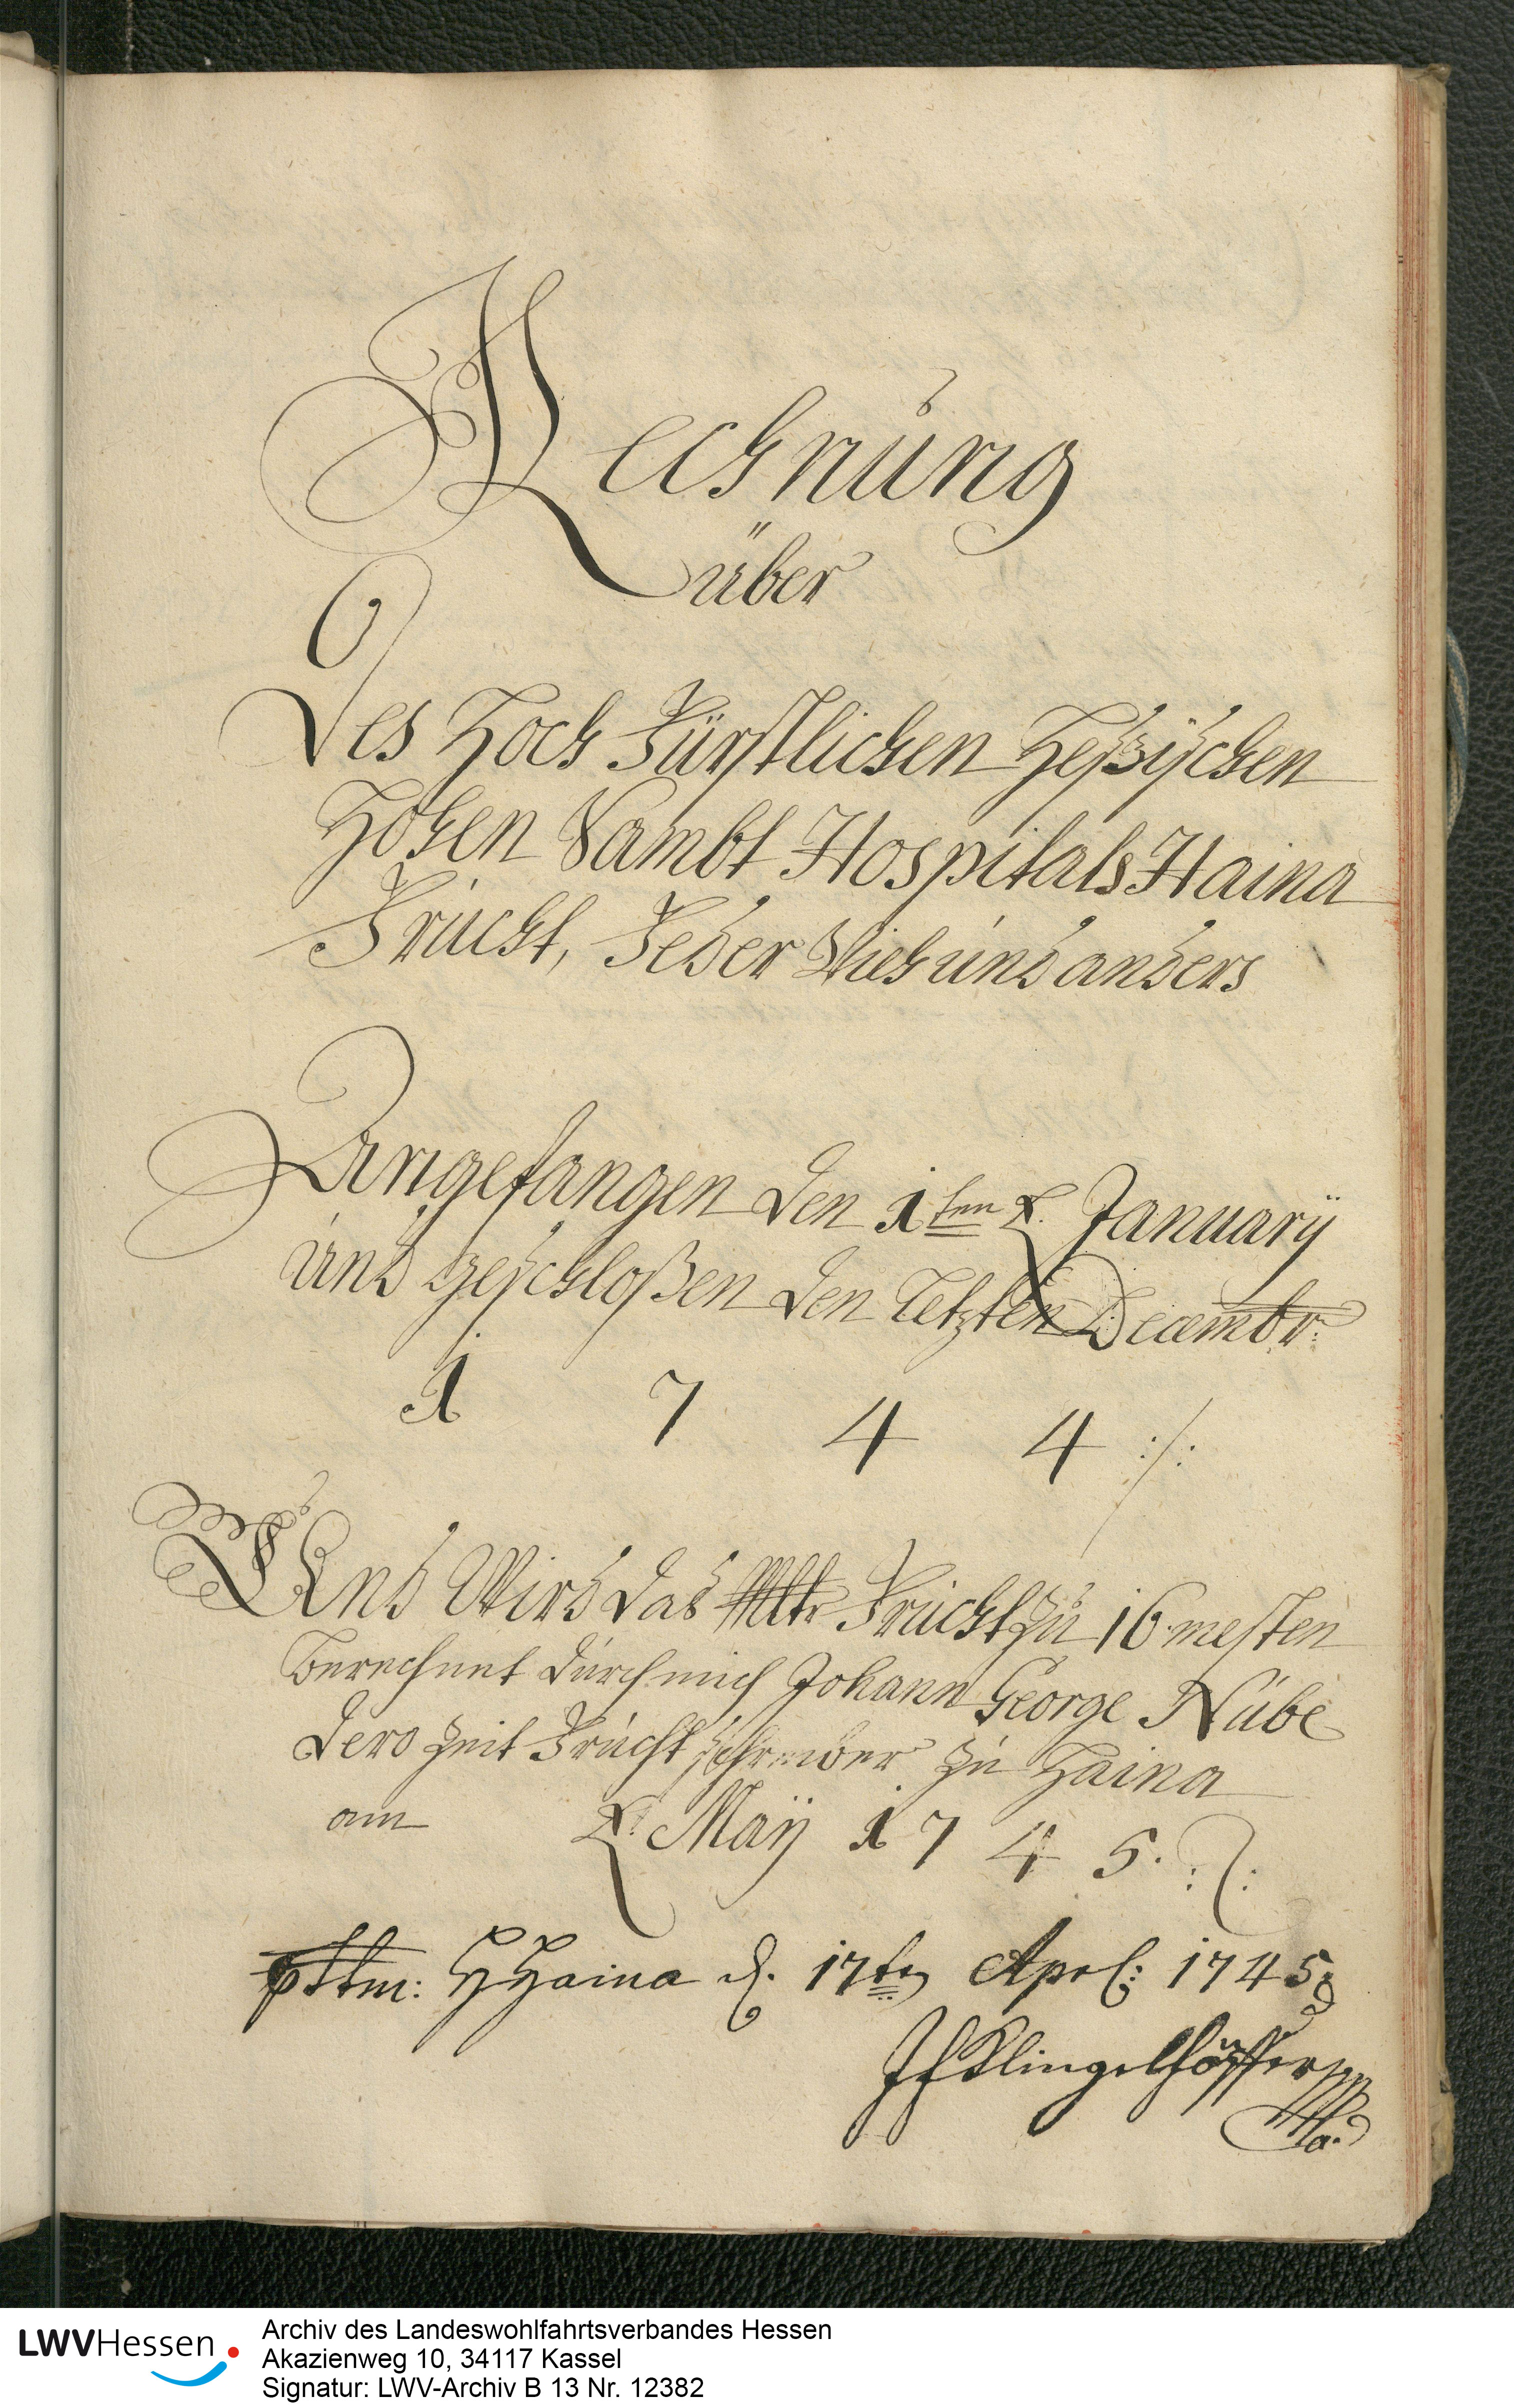 Rechnung
über
Des Hoch Fürstlichen Heßischen
Hohen Sambt Hospitals Haina
Frucht, Feder Vieh und anders
Angefangen den 1ten January
und geschloßen den Letzten Decembr:
1 7 4 4 :/:
Und Wird das Mltr Frucht zu 16 mesten
berechnet durch mich Johann George Nube
dero zeit Frucht schreiber zu Haina
am May 1745.
pttm: Haina d. 17ten Apr: 1745
Klingelhöffer
LWVHessen
Archiv des Landeswohlfahrtsverbandes Hessen
Akazienweg 10, 34117 Kassel
Signatur: LWV-Archiv B 13 Nr. 12382